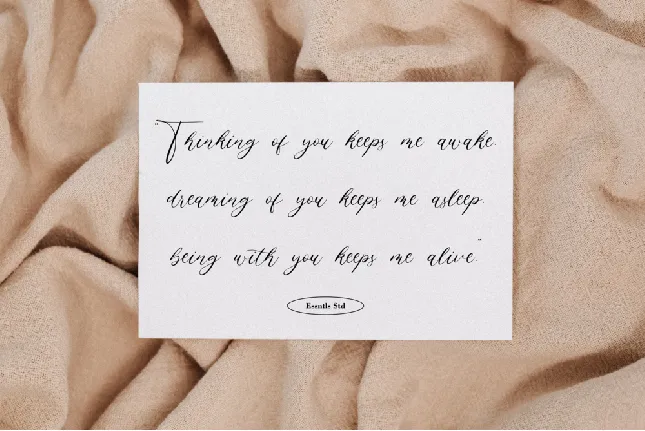 "Thinking of you keeps me awake.
dreaming of you keeps me asleep.
being with you keeps me alive."
Esentls Std